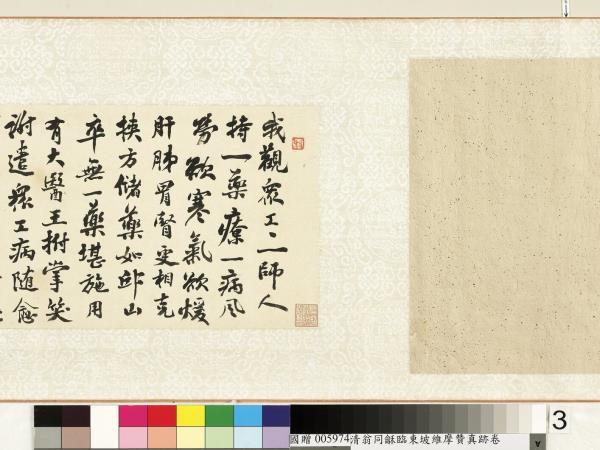 我觀衆工一一師人
持一藥療一病風
勞欲寒氣欲煖
肝肺胃腎更相克
挾方儲藥如邱山
卒無一藥堪施用
有大醫王拊掌笑
謝遣衆工病隨愈
3
國贈 005974清翁同龢臨東坡維摩贊真跡卷